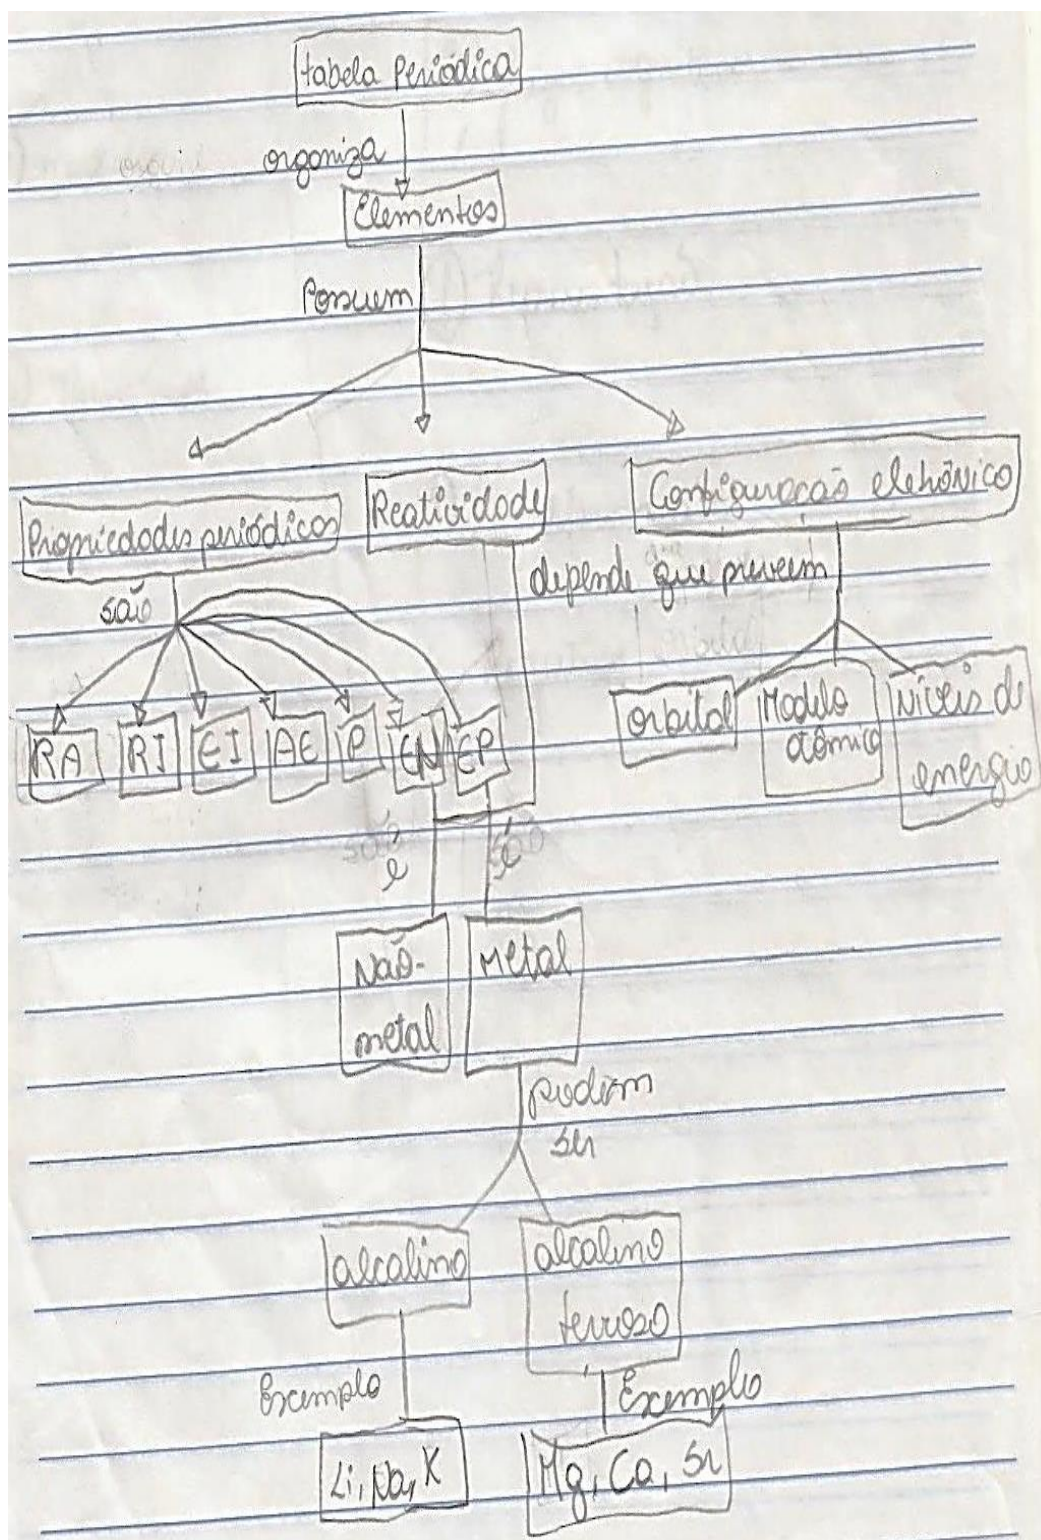 tabela periódica
organiza
Elementos
Possuem
Propriedades periódicas
Reatividade
Configuração eletrônica
são
depende que preveem
RA
RI
EI
AE
P
EN
EP
orbital
Modelo
atômico
Níveis de
energia
é
é
Não-
metal
Metal
podem
ser
alcalino
alcalino
terroso
Exemplo
Exemplo
Li, Na, K
Mg, Ca, Sr